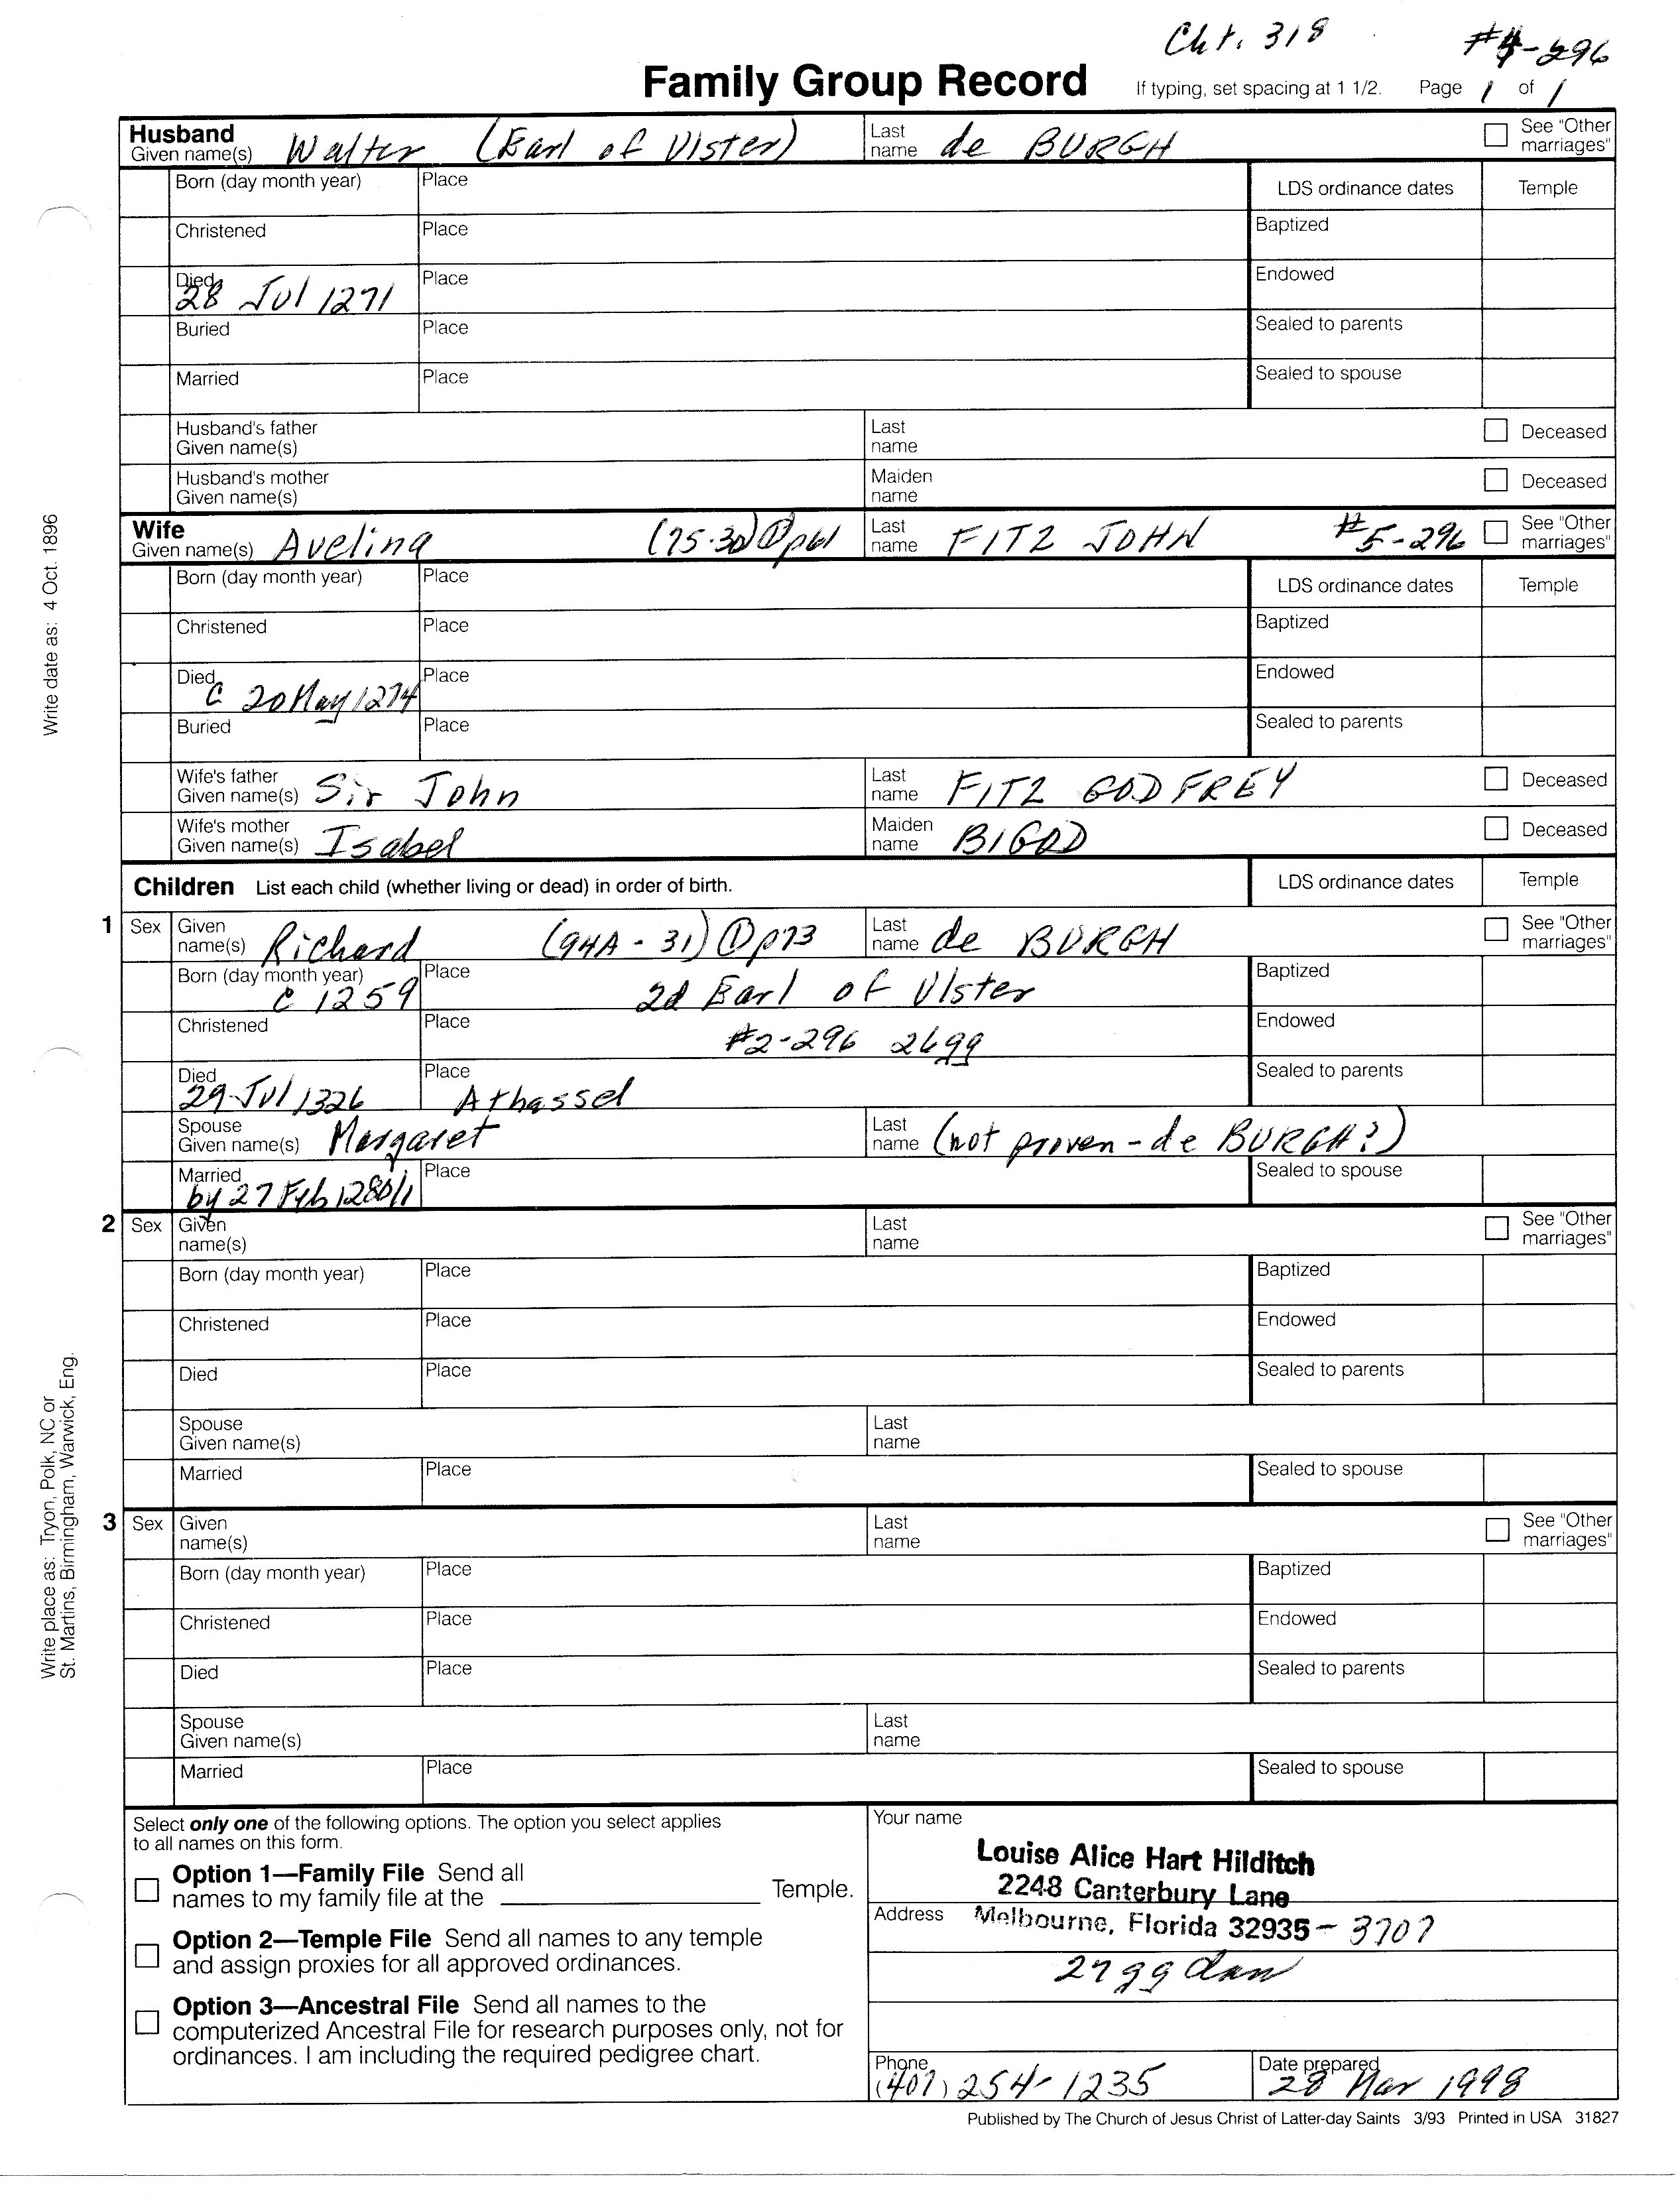 Cht. 318
#4-296
Family Group Record If typing, set spacing at 1 1/2. Page 1 of 1
Husband
Given name(s) Walter (Earl of Ulster) Last name de BURGH See "Other marriages"
Born (day month year) Place LDS ordinance dates Temple
Christened Place Baptized
Died 28 Jul 1271 Place Endowed
Buried Place Sealed to parents
Married Place Sealed to spouse
Husband's father
Given name(s) Last name Deceased
Husband's mother
Given name(s) Maiden name Deceased
Wife
Given name(s) Aveling (75-30) ① p61 Last name FITZ JOHN #5-296 See "Other marriages"
Born (day month year) Place LDS ordinance dates Temple
Christened Place Baptized
Died C 20 May 1274 Place Endowed
Buried Place Sealed to parents
Wife's father
Given name(s) Sir John Last name FITZ GODFREY Deceased
Wife's mother
Given name(s) Isabel Maiden name BIGOD Deceased
Children List each child (whether living or dead) in order of birth. LDS ordinance dates Temple
1 Sex Given name(s) Richard (94A-31) ① p73 Last name de BURGH See "Other marriages"
Born (day month year) C 1259 Place 2d Earl of Ulster Baptized
Christened Place #2-296 26gg Endowed
Died 29 Jul 1326 Place Athassel Sealed to parents
Spouse
Given name(s) Margaret Last name (not proven - de BURGH?)
Married by 27 Feb 1280/1 Place Sealed to spouse
2 Sex Given name(s) Last name See "Other marriages"
Born (day month year) Place Baptized
Christened Place Endowed
Died Place Sealed to parents
Spouse
Given name(s) Last name
Married Place Sealed to spouse
3 Sex Given name(s) Last name See "Other marriages"
Born (day month year) Place Baptized
Christened Place Endowed
Died Place Sealed to parents
Spouse
Given name(s) Last name
Married Place Sealed to spouse
Select only one of the following options. The option you select applies
to all names on this form.
Option 1—Family File Send all
names to my family file at the Temple.
Option 2—Temple File Send all names to any temple
and assign proxies for all approved ordinances.
Option 3—Ancestral File Send all names to the
computerized Ancestral File for research purposes only, not for
ordinances. I am including the required pedigree chart.
Your name
Louise Alice Hart Hilditch
2248 Canterbury Lane
Address Melbourne, Florida 32935 - 3707
27gg dau
Phone (407) 254-1235 Date prepared 28 Mar 1998
Published by The Church of Jesus Christ of Latter-day Saints 3/93 Printed in USA 31827
Write date as: 4 Oct. 1896
Write place as: Tryon, Polk, NC or
St. Martins, Birmingham, Warwick, Eng.